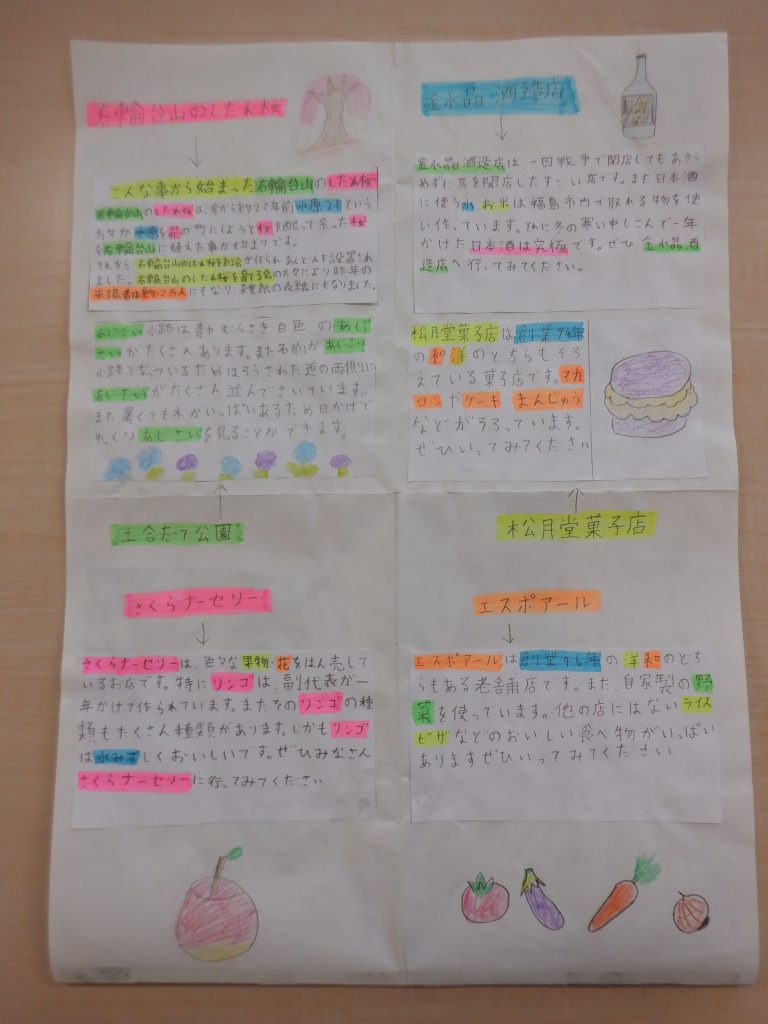 右輪台山のしだれ桜
こんな事から始まった右輪台山のしだれ桜
右輪台山のしだれ桜は、今から約23年前水原21という
方々が水原を花の町にしようと桜を配って余った桜
を右輪台山に植えた事が始まりです。
それから、右輪台山のしだれ桜を育てる会が作られ あんどんも設置され
ました。右輪台山のしだれ桜を育てる会の方々により昨年の
来場者は約2万人にもなり、雑紙の表紙にもなりました。
あじさい小路は青やむらさき白色のあじ
さいがたくさんあります。また名前があじさい
小路となっているためほそうされた道の両側に
あじさいがたくさん並んでさいています。
また、暑くても木がいっぱいあるため日かげで
ゆっくりあじさいを見ることができます。
土合たて公園
さくらナーセリー
さくらナーセリーは、色々な果物・花をはん売して
いるお店です。特にリンゴは、副代表が一
年かけて作られています。またそのリンゴの種
類もたくさん種類があります。しかもリンゴ
は水みずしくおいしいです。ぜひみなさん
さくらナーセリーに行ってみてください
金水晶 酒造店
金水晶酒造店は、一回戦争で閉店してもあきら
めずに店を開店したすごい店です。また日本酒
に使う水、お米は福島市内で取れる物を使
い作っています。それに冬の寒い中しこんで一年
かけた日本酒は究極です。ぜひ、金水晶酒
造店へ行ってみてください。
松月堂菓子店は創業94年
の和洋のどちらもそろ
えている菓子店です。マカ
ロンやケーキ・まんじゅう
などがそろっています。
ぜひいってみてください
松月堂菓子店
エスポアール
エスポアールは創業46年の洋和のどち
らもある老舗店です。また、自家製の野
菜を使っています。他の店にはないライス
ピザなどのおいしい食べ物がいっぱい
ありますぜひいってみてください